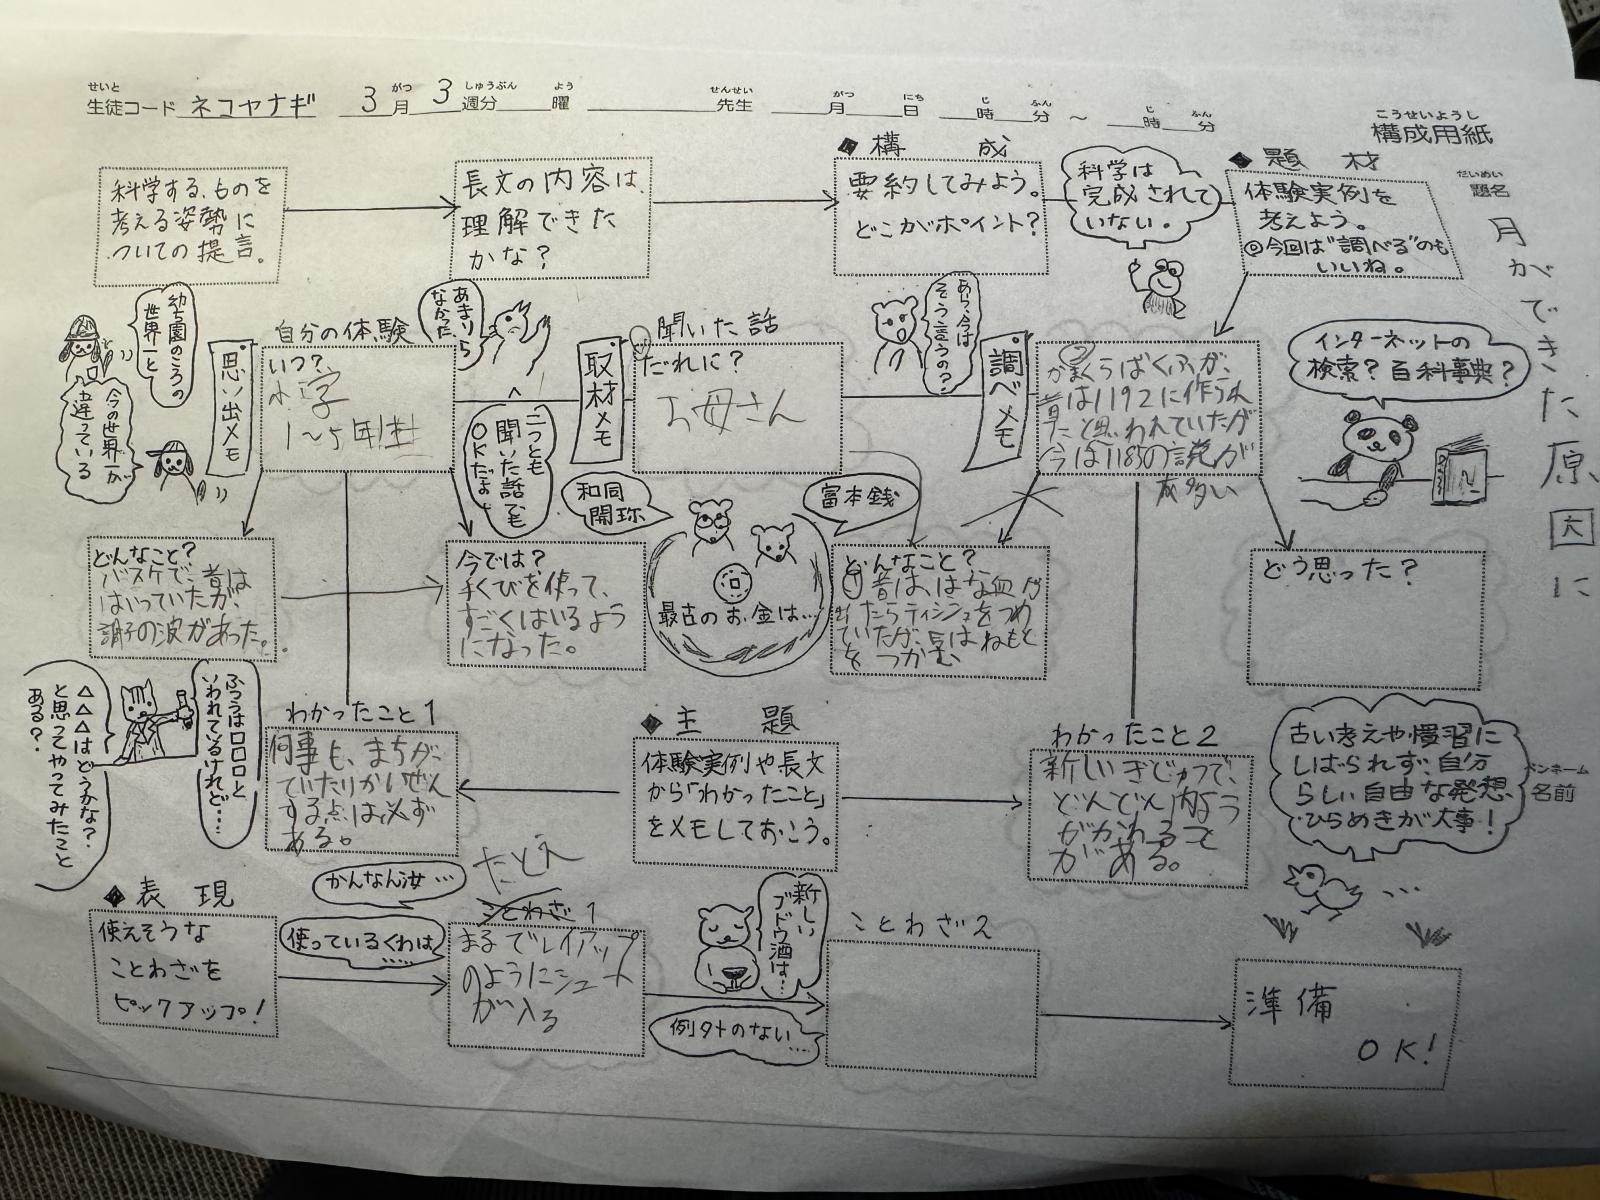 生徒コード ネコヤナギ 3月 3週分 曜 先生 月 日 時 分 ～ 時 分
せいと がつ しゅうぶん よう せんせい がつ にち じ ふん じ ふん
こうせいようし
構成用紙
だいめい
題名
月ができた原因に
ペンネーム
名前
◆題材
体験実例を
考えよう。
◎今回は“調べる”のも
いいね。
科学は
完成されて
いない。
◆構成
要約してみよう。
どこがポイント？
長文の内容は、
理解できた
かな？
科学する、ものを
考える姿勢に
ついての提言。
幼ち園のころの
世界一と
今の世界一が
違っている
思い出メモ
自分の体験
いつ？
小学
1～5年生
あまりら
なかった
二つとも
聞いた話でも
OKだよ。
取材メモ
聞いた話
だれに？
お母さん
あら、今は
そう言うの？
調べメモ
かまくらばくふが、
昔は1192に作られ
たと思われていたが
今は1185の説が
多い
インターネットの
検索？百科事典？
どんなこと？
バスケで、昔は
はいっていたが、
調子の波があった。
今では？
手くびを使って、
すごくはいるよう
になった。
和同
開珎
富本銭
最古のお金は…
どんなこと？
昔は、はな血が
出たらティッシュをつめ
ていたが、
つかむ
どう思った？
ふつうは□□□と
いわれているけれど…
△△△はどうかな？
と思ってやってみたこと
ある？
わかったこと1
何事も、まちが
っていたりかいぜん
する点は必ず
ある。
◆主題
体験実例や長文
から「わかったこと」
をメモしておこう。
わかったこと2
新しいぎじゅつで、
どんどん内よう
がかわること
がある。
古い考えや慣習に
しばられず、自分
らしい自由な発想、
ひらめきが大事！
…
◆表現
使えそうな
ことわざを
ピックアップ！
かんなん汝…
使っているくわは
……
たとえ
ことわざ1
まるでレイアップ
のようにシュート
が入る
新しい
ブドウ酒は…
例外のない
……
ことわざ2
準備
OK！